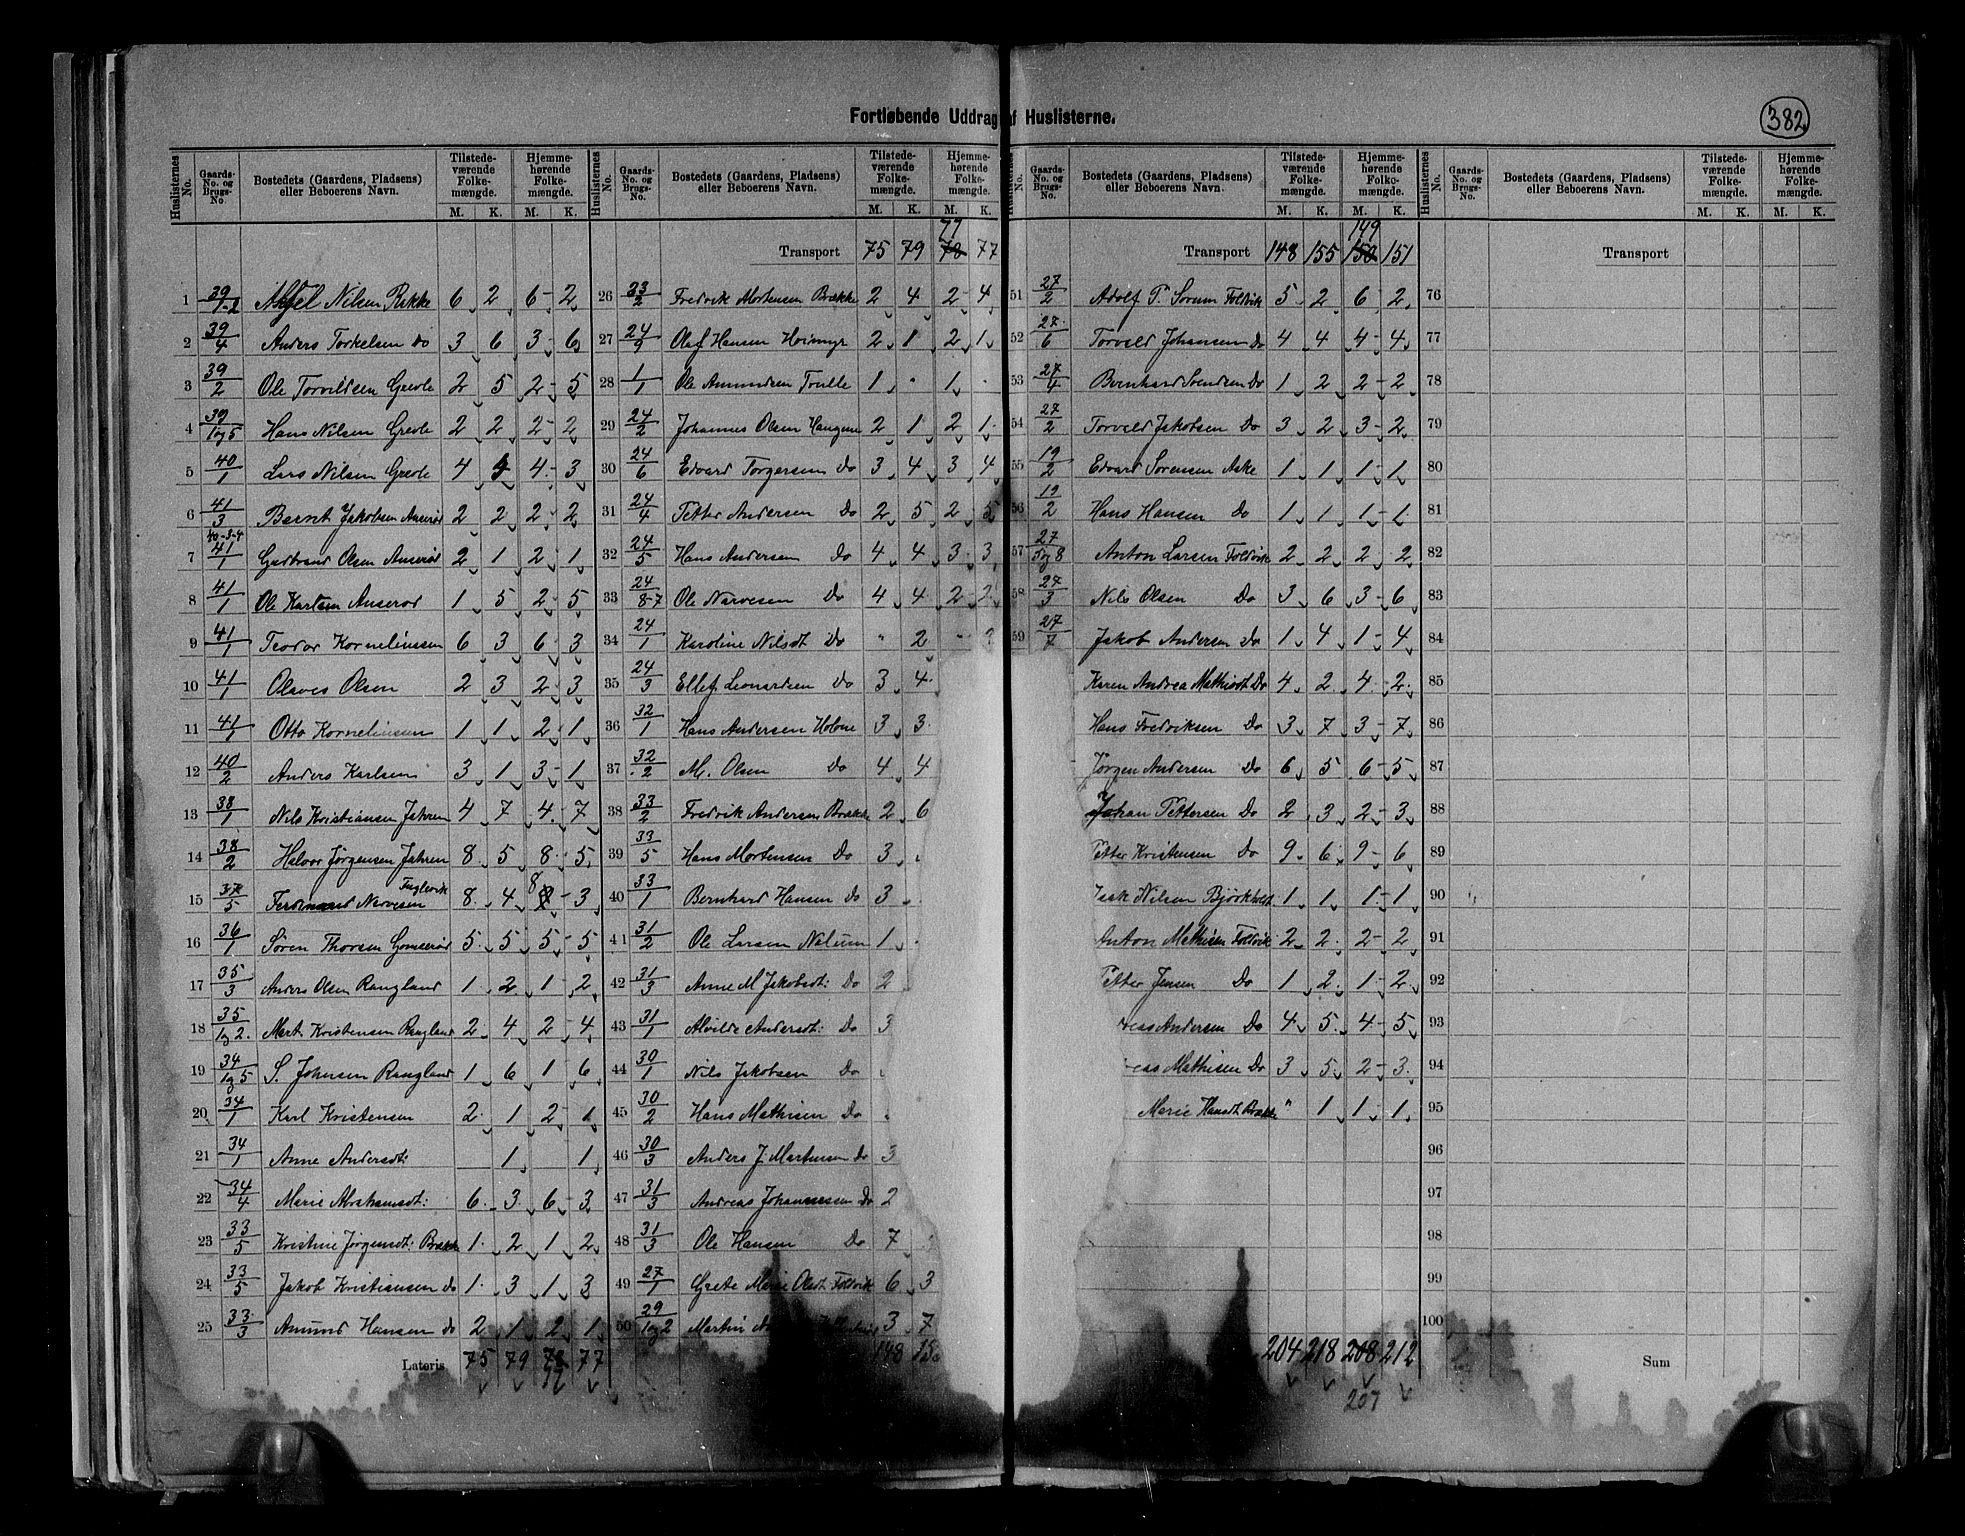 382
Fortløbende Uddrag af Huslisterne.
Huslisternes No. | Gaards-No. og Brugs-No. | Bostedets (Gaardens, Pladsens) eller Beboerens Navn. | Tilstedeværende Folkemængde. M. K. | Hjemmehørende Folkemængde. M. K.
1 39/1-2 Nilsen Rikke 6 2 6 2
2 39/4 Anders Torkelsen do 3 6 3 6
3 39/2 Ole Torvildsen Grevle 2 5 2 5
4 39/1og5 Hans Nilsen Grevle 2 2 2 2
5 40/1 Lars Nilsen Grevle 4 4 4 3
6 41/3 Bernt Jakobsen Anserød 2 2 2 2
7 40-3-4 41/1 Gudbrand Olsen Anserød 2 1 2 1
8 41/1 Ole Karlsen Anserød 1 5 2 5
9 41/1 Teodor Korneliussen 6 3 6 3
10 41/1 Olaves Olsen 2 3 2 3
11 41/1 Otto Korneliussen 1 1 2 1
12 40/2 Anders Karlsen 3 1 3 1
13 38/1 Nils Kristiansen Jahren 4 7 4 7
14 38/2 Halvor Jørgensen Jahren 8 5 8 5
15 37/5 Ferdinand Narvesen Fuglevik 8 4 8 3
16 36/1 Søren Thorsen Gonserød 5 5 5 5
17 35/3 Anders Olsen Rangland 1 2 1 2
18 35/1og2 Mart. Kristensen Rangland 2 4 2 4
19 34/1og5 S. Johnsen Rangland 1 6 1 6
20 34/1 Karl Kristensen 2 1 2 1
21 34/1 Anne Andersdt: 1 1
22 34/4 Marie Abrahamsdt: 6 3 6 3
23 33/5 Kristine Jørgensdt: Brække 1 2 1 2
24 33/5 Jakob Kristiansen do 1 3 1 3
25 33/3 Amund Hansen do 2 1 2 1
Lateris 75 79 78 77
77
Transport 75 79 78 77
77
26 33/2 Fredrik Mortensen Brække 2 4 2 4
27 24/9 Olaf Hansen Hoimyr 2 1 2 1
28 1/1 Ole Amundsen 1 " 1 "
29 24/2 Johannes Olsen Haugene 2 1 2 1
30 24/6 Edvard Torgersen do 3 4 3 4
31 24/4 Petter Andersen Do 2 5 2 5
32 24/5 Hans Andersen Do 4 4 3 3
33 24/8-7 Ole Narvesen Do 4 4 2 2
34 24/1 Karoline Nilsdt Do " 2 "
35 24/3 Ellef Leonardsen Do 3 4
36 32/1 Hans Andersen Holone 3 3
37 32/2 M. Olsen Do 4 4
38 33/2 Fredrik Andersen Brække 2 6
39 33/5 Hans Mortensen Do 3
40 33/1 Bernhard Hansen Do 3
41 31/2 Ole Larsen Nalum 1
42 31/3 Anne M Jakobsdt: Do 2
43 31/1 Alvilde Andersdt: Do 3
44 30/1 Nils Jakobsen Do
45 30/2 Hans Mathisen Do
46 30/3 Anders J Martinsen Do 3
47 31/3 Andreas Johannessen Do 2
48 31/3 Ole Hansen Do 7
49 27/1 Grete Marie Olsdt Foldvik 6 3
50 29/1og2 Martin 3 7
148 15
Transport 148 155 150 151
149
51 27/2 Adolf P. Sorum Foldvik 5 2 6 2
52 27/6 Torvald Johansen Do 4 4 4 4
53 27/4 Bernhard Svendsen Do 1 2 2 2
54 27/2 Torvald Jakobsen Do 3 2 3 2
55 19/2 Edvard Sorensen Aske 1 1 1 1
56 19/2 Hans Hansen Do 1 1 1 1
57 27/5og8 Anton Larsen Foldvik 2 2 2 2
58 27/3 Nils Olsen Do 3 6 3 6
59 27/7 Jakob Andersen Do 1 4 1 4
Karen Andrea Mathisdt Do 4 2 4 2
Hans Fredriksen Do 3 7 3 7
Jørgen Andersen Do 6 5 6 5
Johan Pettersen Do 2 3 2 3
Petter Kristensen Do 9 6 9 6
Nilsen Bjørkholdt 1 1 1 1
Anton Mathisen Foldvik 2 2 2 2
Petter Jensen Do 1 2 1 2
reas Andersen Do 4 5 4 5
reas Mathisen Do 3 5 2 3
Marie Hansdt Brække " 1 1 1
204 218 208 212
207
Transport
76
77
78
79
80
81
82
83
84
85
86
87
88
89
90
91
92
93
94
95
96
97
98
99
100
Sum